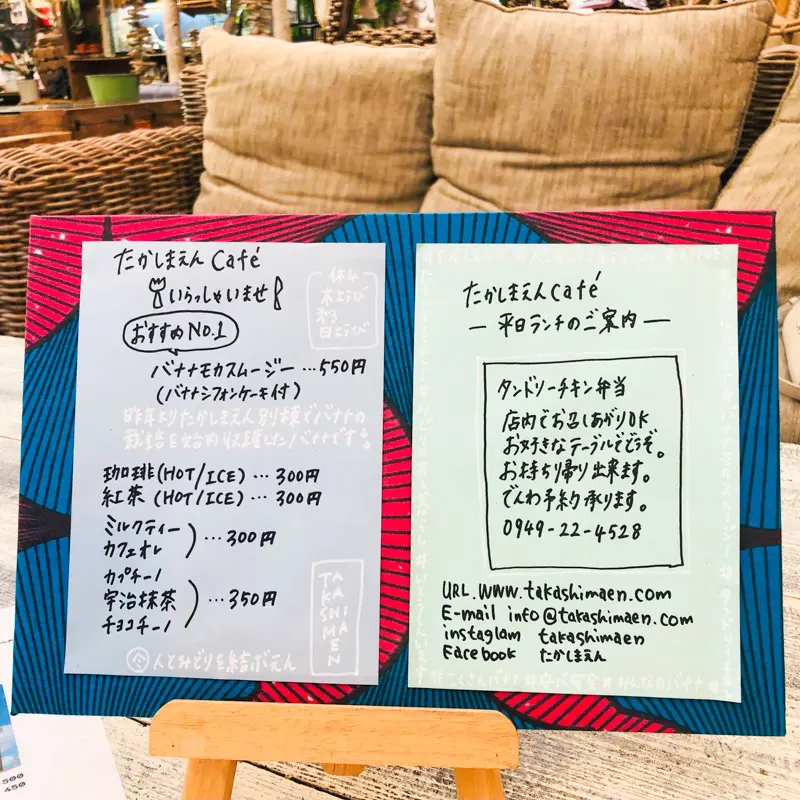 たかしまえん Café
いらっしゃいませ
休み
木ようび
第3
日ようび
おすすめ NO.1
バナナモカスムージー…550円
(バナナシフォンケーキ付)
昨年よりたかしまえん別棟でバナナの
栽培を始め収穫したバナナです。
珈琲(HOT/ICE)…300円
紅茶(HOT/ICE)…300円
ミルクティー
カフェオレ
)…300円
カプチーノ
宇治抹茶
チョコチーノ
)…350円
TAKASHIMAEN
人とみどりを結ぶえん
たかしまえん Café
— 平日ランチのご案内 —
タンドリーチキン弁当
店内でお召しあがりOK
お好きなテーブルでどうぞ。
お持ち帰り出来ます。
でんわ予約承ります。
0949-22-4528
URL.www.takashimaen.com
E-mail info@takashimaen.com
instaglam takashimaen
Facebook たかしまえん
#みんなのバナナ
500
450